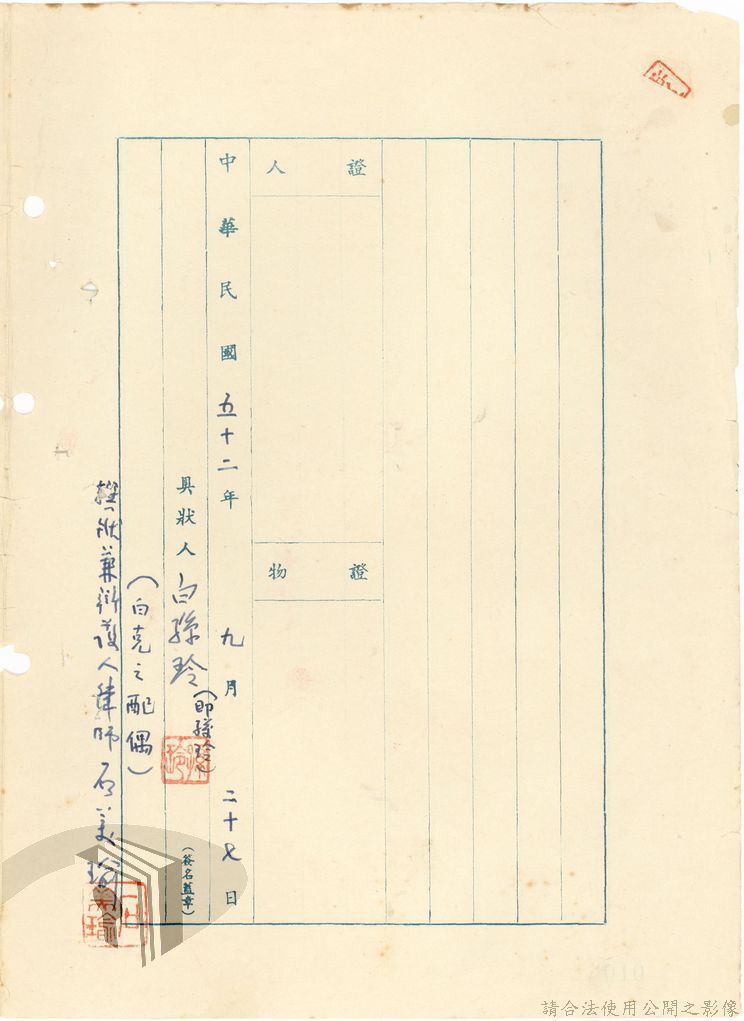 證人
證物
中華民國五十二年九月二十七日
具狀人 白孫玲(即孫玲)(簽名蓋章)
(白克之配偶)
撰狀兼辯護人律師石美瑜
孫玲
石美瑜
請合法使用公開之影像